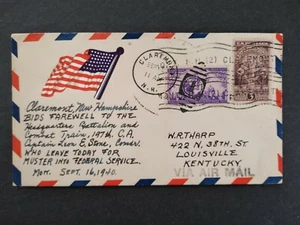 CLAREMONT
N.H.
3
Claremont, New Hampshire
BIDS FAREWELL TO THE
Headquarters Battalion and
Combat Train, 197th C.A.
Captain Leon E. Stone, Comdr.
WHO LEAVE TODAY FOR
MUSTER INTO FEDERAL SERVICE.
MON. SEPT. 16, 1940.
W.R. THARP
422 N. 38TH. ST
LOUISVILLE
KENTUCKY
VIA AIR MAIL